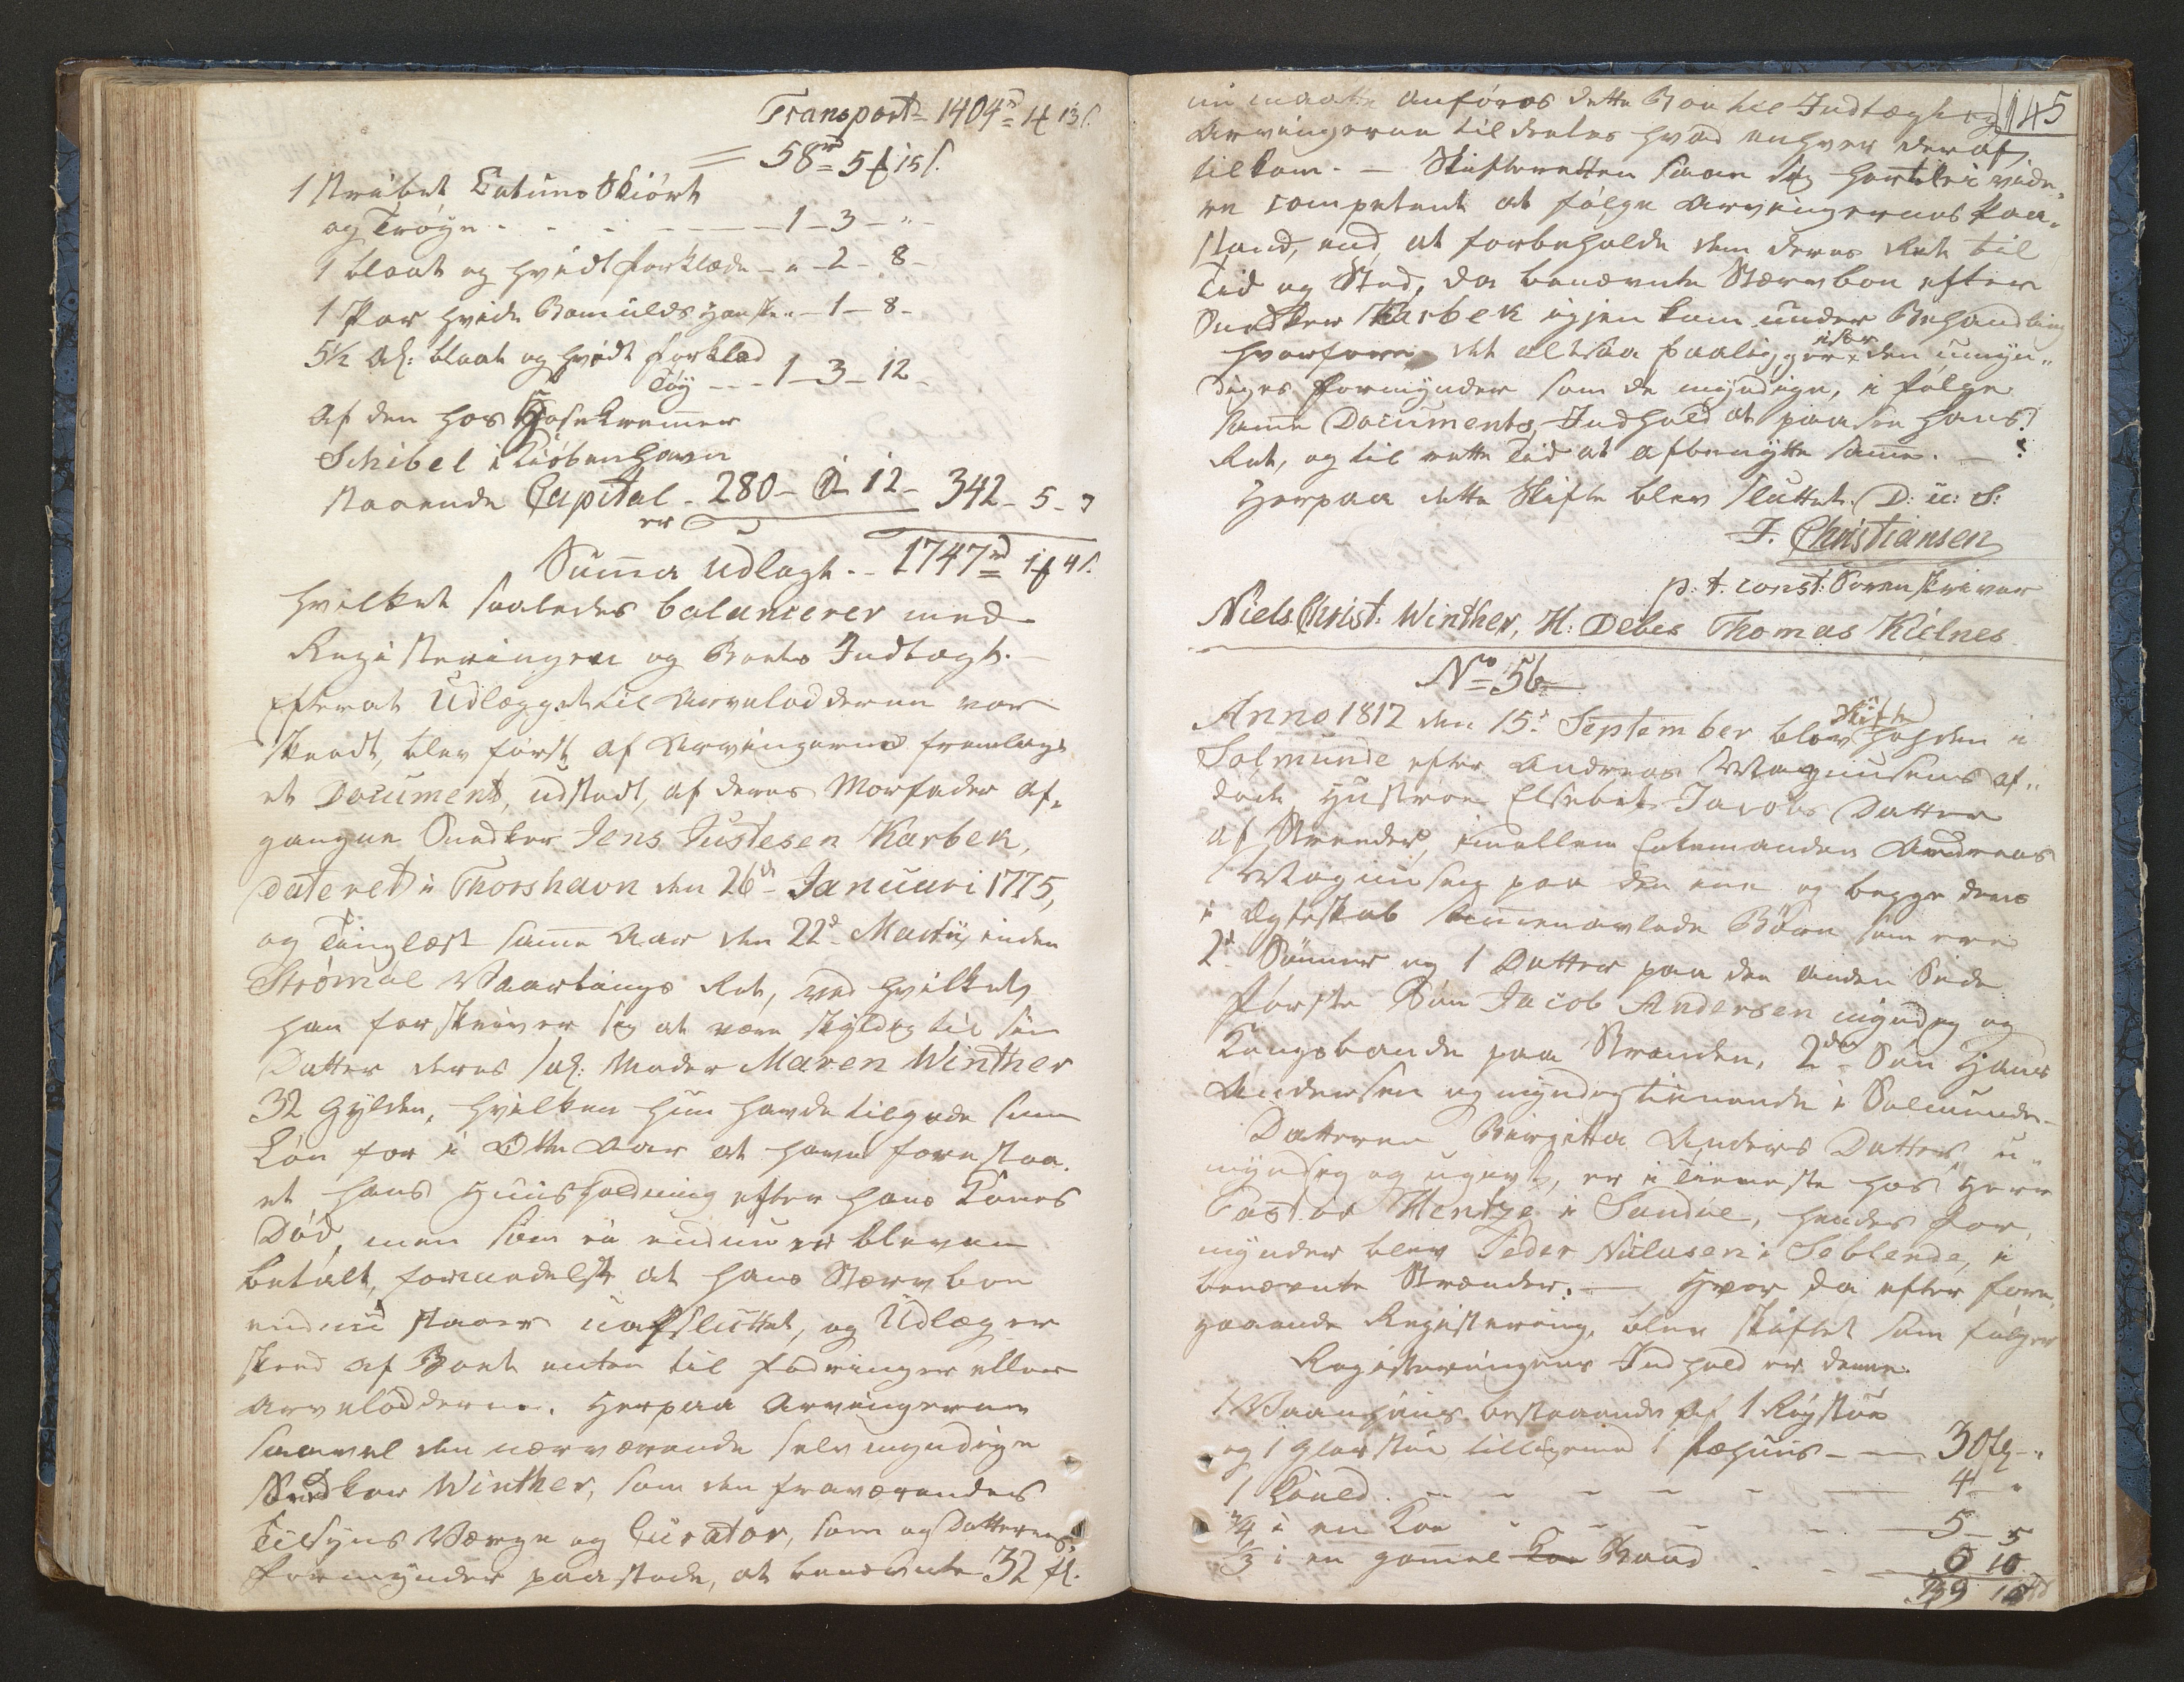 Transport = 1404rd 4 ₰ 13 s.
= 58rd 5 ₰ 15 s.
1 stribet Catuns Skiört
og Tröye - - - 1 - 3 - "
1 blaat og hvidt forklæde - " - 2 - 8 -
1 Par hvide Bomulds Handsker " - 1 - 8 -
5½ Al: blaat og hvidt forklæd
Töy - - - 1 - 3 - 12 -
Af den hos Hosekræmmer
Schibel i Kiöbenhavn
staaende Capital - 280 - 12 - 342 - 5 - 7
er
Summa Udlagt - - 1747rd 1 ₰ 4 s.
hvilket saaledes balancerer med
Registeringen og Boets Indtægt. -
Efterat Udlægget til Arvelodderne var
skeedt, blev först af Arvingerne fremlagt
et Document, udstædt, af deres Morfader af-
gangne Snedker Jens Justesen Karbek,
dateret i Thorshavn den 26de Januari 1775,
og Tinglæst samme Aar den 22de Martii inden
Strömöe Vaartings Ret, ved hvilket
han forskriver sig at være skyldig til sin
Datter deres sal: Moder Maren Winther
32 Gylden, hvilken hun havde tilgode som
Lön for i Otte Aar at have forestaa-
et hans Huusholdning efter hans Kones
Död, men som ei endnu er bleven
betalt, formedelst at hans Stervboe
endnu staaer uafsluttet, og Udlæg er
skeed af Boet enten til fordringer eller
Arvelodderne. Herpaa Arvingerne
saavel den nærværende selv myndige
Snedker Winther, som den fraværendes
Tilsyns Værge og Curator, som og Datterens
Formynder paastode, at benævnte 32 fl.
145
nu maatte anföres dette Boe til Indtægt og
Arvingerne tildeeles hvad enhver deraf
tilkom. - Skifteretten saae sig hertil ei vide-
re competent at fölge Arvingernes Paa-
stand, end at forbeholde dem deres Ret til
Tid og Sted, da benævnte Stervboe efter
Snedker Karbek igjen kom under Behandling
hvorfore det altsaa paaligger den umyn-
diges formynder som de myndige, i fölge
samme Documents Indhold at paasee hans
Ret, og til rette Tid at afbenytte samme. -
Herpaa dette Skifte blev sluttet. D: u: S:
J. Christiansen
p: t. const: Sorenskriver
Niels Christ: Winther, H: Debes Thomas Kielnes
No 56
Anno 1812 den 15de September blev Skifte holden i
Solmunde efter Andreas Magnusens af-
döde Hustroe Elsebet Jacobs Datter
af Strender, imellem Enkemanden Andreas
Magnusen paa den ene og begge deres
i Ægteskab sammenavlede Börn som ere
2de Sönner og 1 Datter paa den anden Side
förste Sön Jacob Andersen myndig og
Kongsbonde paa Stranden, 2den Sön Hans
Andersen og myndig tienende i Solmunde -
Datteren Birgitta Anders Datter, u-
myndig og ugivt, er i Tieneste hos Herr
Pastor Hentze i Sandöe, hendes For-
mynder blev Peder Nielasen i Söldende, i
benævnte Strænder. - Hvor da efter fore-
gaaende Registrering, blev skiftet som fölger
Registeringens Indhold er denne.
1 Vaanhuus bestaaende af 1 Rögstue
og 1 Glarstue tilligemed 1 fæhuus - - 30 fl - "
1 - - - - - 4 "
¾ i en Koe - - - - 5 - 5
⅓ i en gammel Baad - - 0 10
39 15